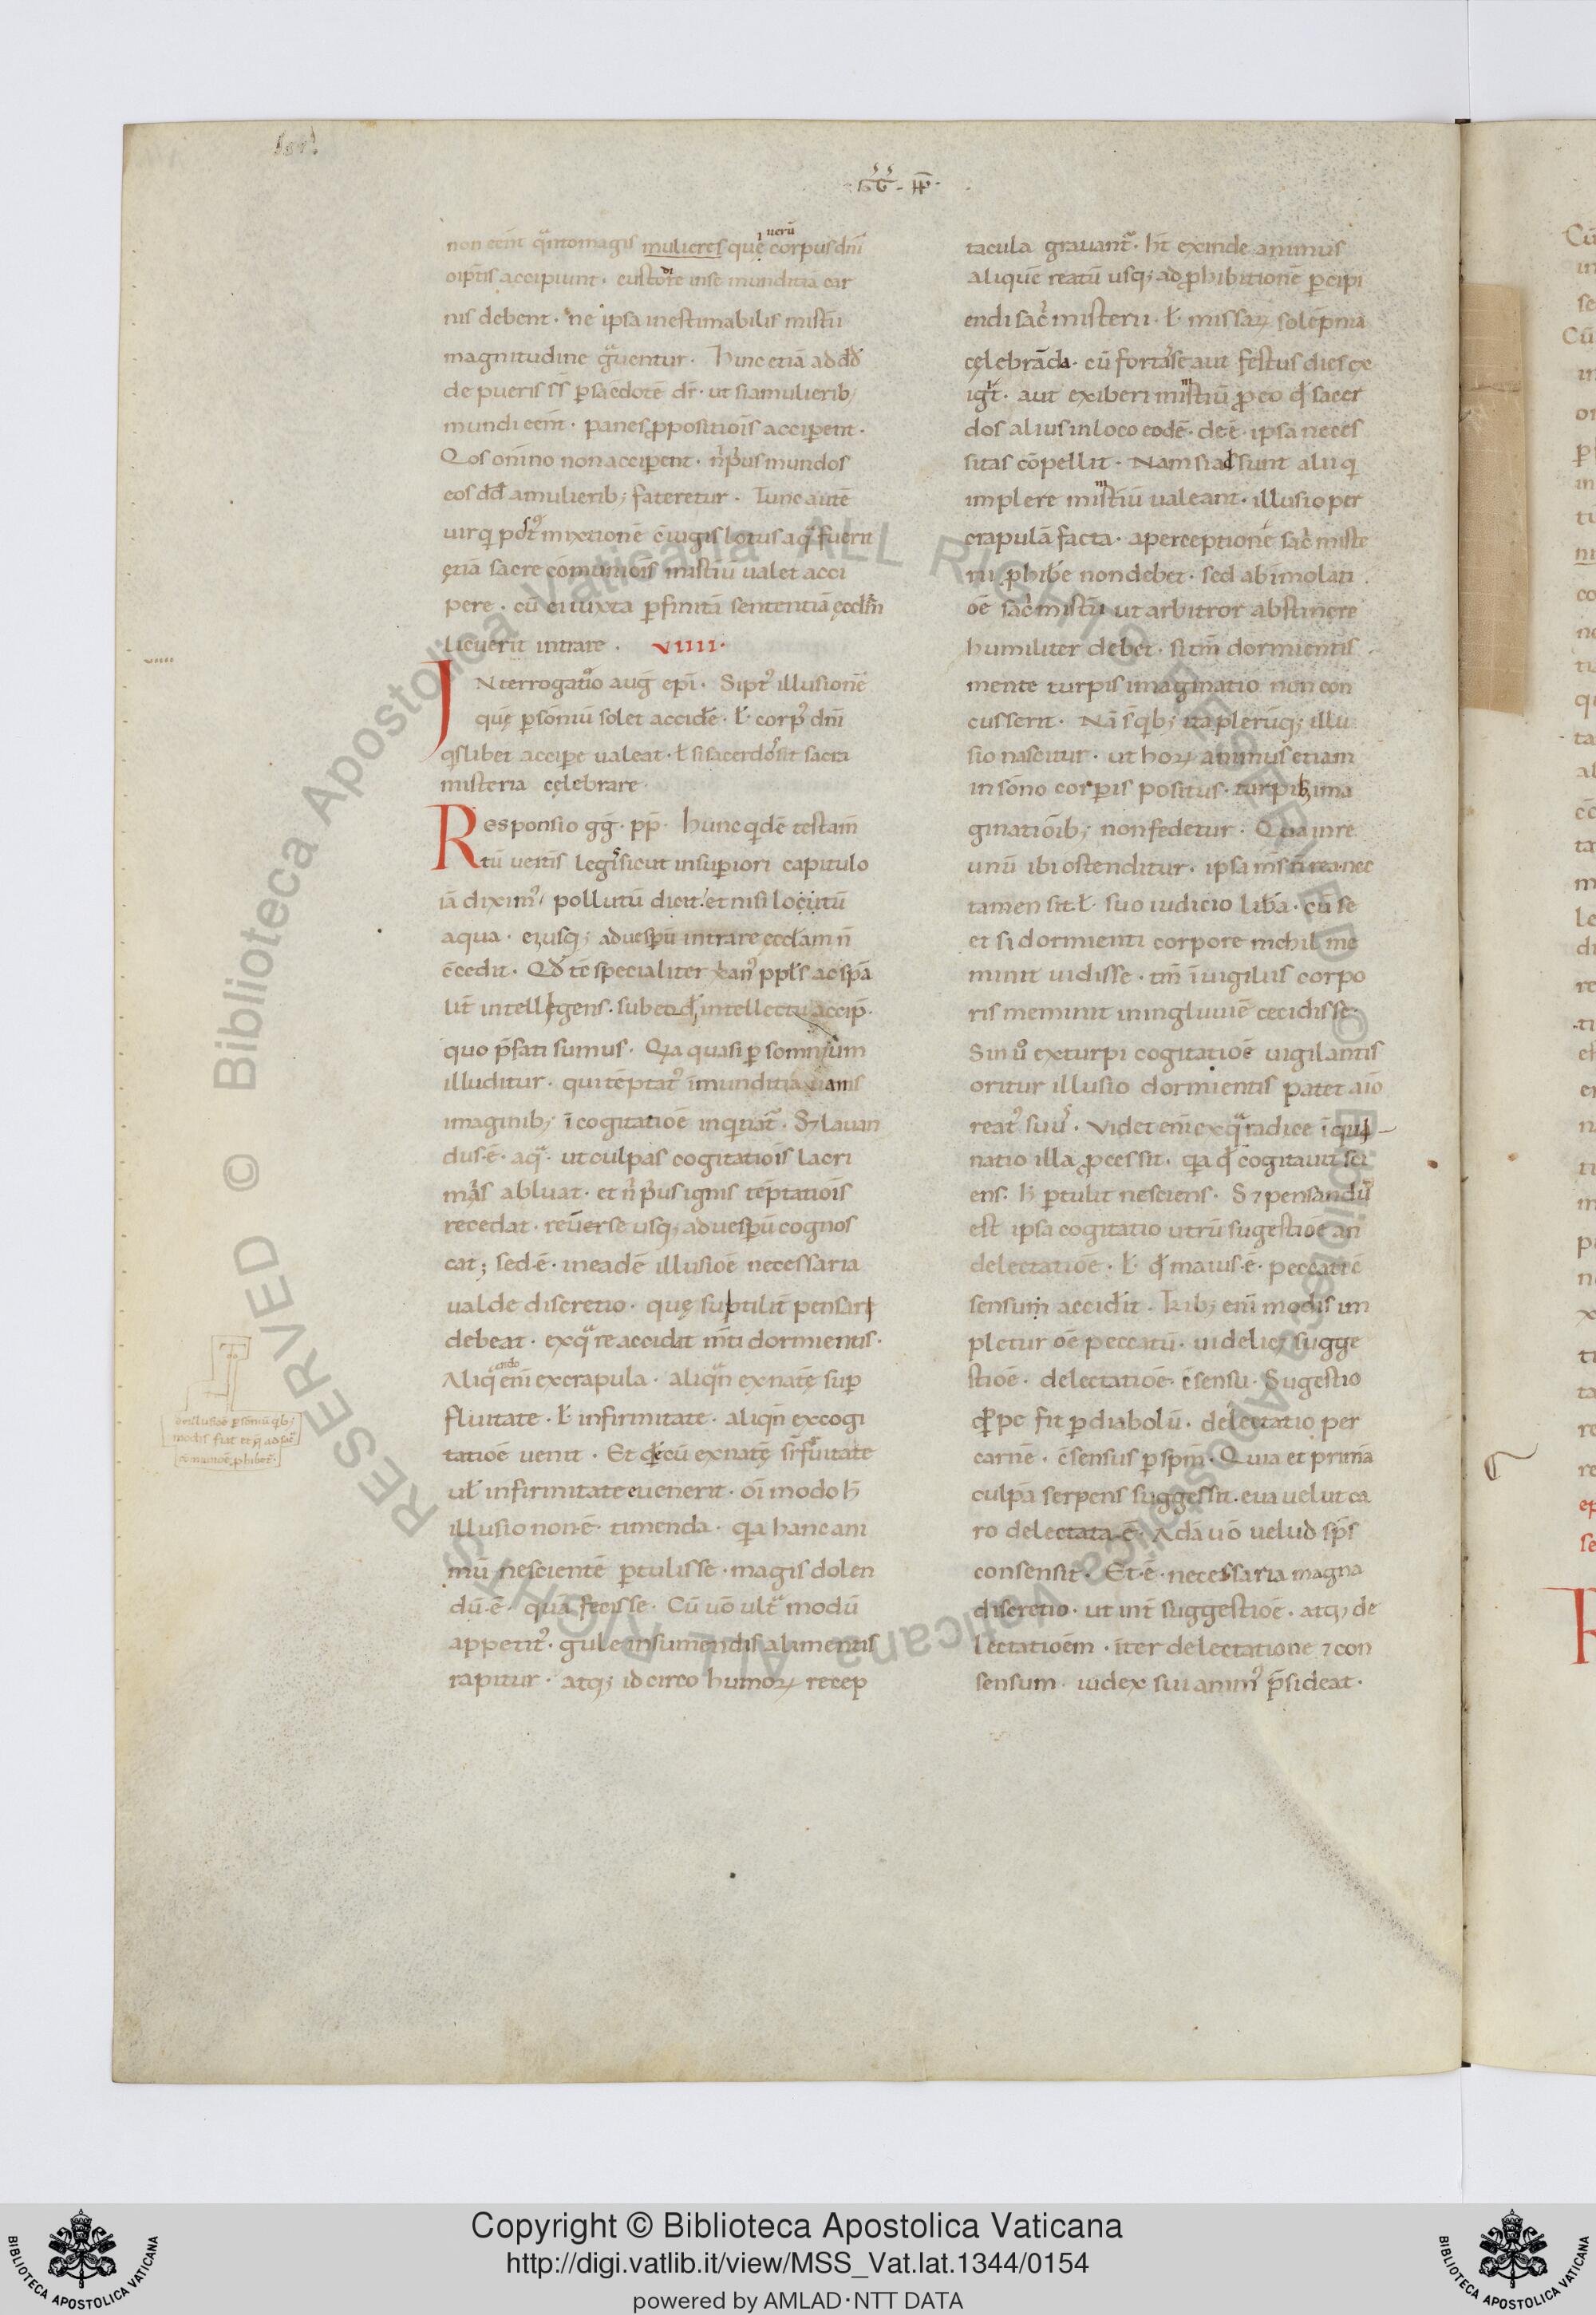 non eēnt q̄ntomagis mulieres que corpus dn̄i
oīptis accipiunt · custodire inse munditiā car
nis debent · ne ipsa inestimabilis mist̄ii
magnitudine gͣuentur · Hinc etiā ad dd̄
de pueris ss̄ p̱ sac̄edotē dr̄ · ut si a mulierib;
mundi eēnt · panes ꝓpositiōis accip̱ent ·
Qos om̄ino non accip̱ent · n̄ p̓us mundos
eos dd̄ a mulierib; fateretur · Tunc autē
uir qi post mixtionē c̄iugis lotus aqͣ fuerit
ętiā sacre cōmuniōis mist̄iū ualet acci
pere · cū ei iuxta p̱finitā sententiā ęccl̄m
licuerit intrare · VIIII ·
INterrogatio aug̅ epi̅ · Si pꝰt illusionē
quę p̱ sōniū solet accidēe · ł corpꝰ dn̄i
qislibet accip̱e ualeat · ł si sacerdos sit sacra
misteria cęlebrare
Responsio gg̅ · pp̅ · Hunc qidē testam̄
tū uet̄is legis sicut in sup̱iori capitulo
iā diximꝰ pollutū dicit · et nisi locutū
aqua · ei usq; ad uesp̱ū intrare eccl̄am n̄
c̄cedit · Qd̄ tē specialiter x̄anꝰ ppl̄s ac sp̄a
lit̄ intellegens · sub eod̄ intellectu accip̄ ·
quo p̄fati sumus · Qia quasi p̱ somnium
illuditur · qui tēptatꝰ īmunditia uanis
imaginib; ī cogitatiōe inqinatͬ · S; lauan
dus ē · aqͣ · ut culpas cogitatiōis lacri
mis abluat · et n̄ p̓us ignis tēptatiōis
recedat · reū esse usq; ad uesp̱ū cognos
cat; sed ē · in eadē illusiōe necessaria
ualde discretio · quę suptilit̄ pensari
debeat · ex qͣ re accidat m̄ti dormientis ·
Aliqͣndo eni̅ ex crapula · aliqn̄ ex natę sup̱
fluitate · ł infirmitate · aliqn̄ ex cogi
tatiōe uenit · Et qidē cū ex natę sup̱fluitate
uł infirmitate euenerit · oi̅ modo h̄
illusio non ē · timenda · qia hanc ani
mū nescientē p̱tulisse · magis dolen
dū ē · quā fecisse · Cū uō ultͣ modū
appetitꝰ · gule in sumendis alimentis
rapitur · atq; idcirco humoꝝ recep
tacula grauantͬ · ht̄ exinde animus
aliquē reatū usq; ad ꝓhibitionē p̱cipi
endi sac̄i misterii · ł missaꝝ solēpnia
cęlebrāda · cū fortasse aut festus dies ex
igit · aut exiberi mistiū ꝓ eo qd̄ sacer
dos alius in loco eodē · deē · ipsa neces
sitas cōpellit · Nam si adsunt alii qi
implere mistiū ualeant · illusio per
crapulā facta · a perceptionē sac̄i miste
rii ꝓhibēe non debet · sed ab imolati
oē sac̄i mist̄ii ut arbitror abstinere
humiliter debet · si tm̄ dormientis
mente turpis imaginatio non con
cusserit · Nā s̄ qib; ita plerūq; illu
sio nascitur · ut hoꝝ animus etiam
in sōno corp̱is positus · turpib; ima
ginatiōib; non fedetur · Qua in re
unū ibi ostenditur · ipsa m̄s n̄ rea · nec
tamen sit · ł suo iudicio lib̄a · cū se
et si dormienti corpore nichil me
minit uidisse · tm̄ ī uigiliis corpo
ris meminit in ingluuiē cecidisse ·
Sin uͦ ex turpi cogitatiōe uigilantis
oritur illusio dormientis patet aīo
reatꝰ suus · Videt eni̅ ex qͣ radice īqui
natio illa ꝓcessit · qia qd̄ cogitauit sci
ens · h̄ p̱tulit nesciens · S; pensandū
est ipsa cogitatio utrū sugestiōe an
delectatiōe · ł qd̄ maius ē · peccati c̄
sensum accidit · Trib; eni̅ modis im
pletur oē peccatū · uidelicet sugge
stiōe · delectatiōe · c̄sensu · Sugestio
qippe fit p̱ diabolū · delectatio per
carnē · c̄sensus p̱ spm̄ · Quia et primā
culpā serpens suggessit · eua uelut ca
ro delectata ē · Adā uō uelud sp̄s
consensit · Et ē · necessaria magna
discretio · ut int̄ suggestiōē · atq; de
lectatiōem · īter delectatione ⁊ con
sensum · iudex sui animꝰ p̄sideat ·
VIIII
de illusiōe p̱ sōniū qib;
modis fiat
RESERVED © Biblioteca Apostolica Vaticana ALL RIGHTS RESERVED © Biblioteca Apostolica Vaticana ALL RIGHTS
Copyright © Biblioteca Apostolica Vaticana
http://digi.vatlib.it/view/MSS_Vat.lat.1344/0154
powered by AMLAD·NTT DATA
BIBLIOTECA APOSTOLICA VATICANA
BIBLIOTECA APOSTOLICA VATICANA